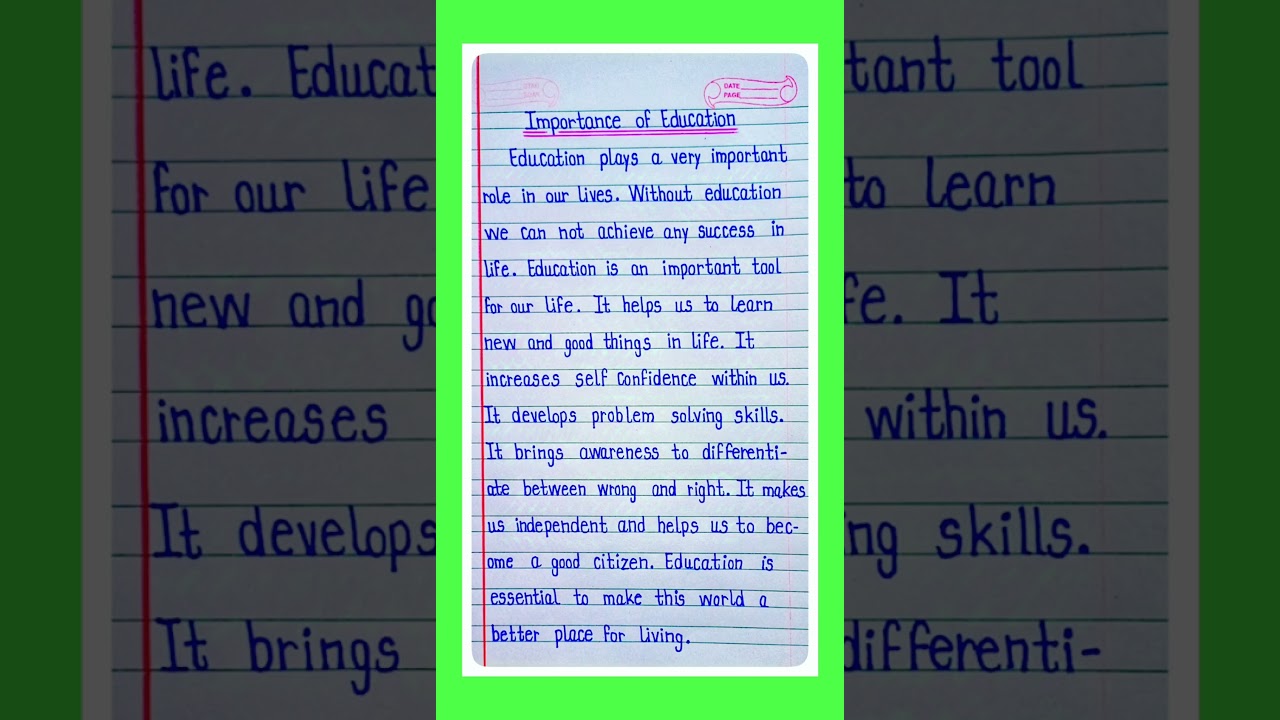 DATE
PAGE
Importance of Education
Education plays a very important
role in our lives. Without education
we can not achieve any success in
life. Education is an important tool
for our life. It helps us to learn
new and good things in life. It
increases self confidence within us.
It develops problem solving skills.
It brings awareness to differenti-
ate between wrong and right. It makes
us independent and helps us to bec-
ome a good citizen. Education is
essential to make this world a
better place for living.
life. Educat
for our life
new and go
increases
It develops
It brings
tant tool
to learn
fe. It
within us.
ng skills.
differenti-